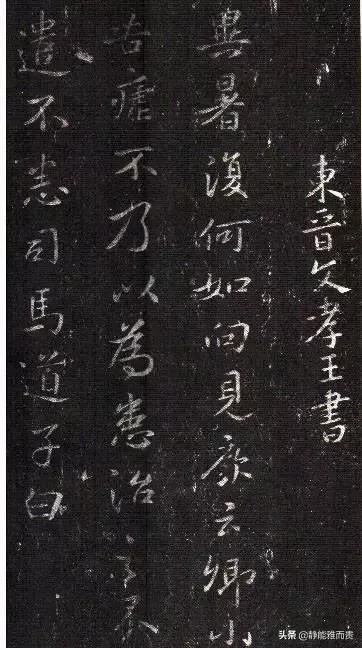 東晉文孝王書
異暑復何如向見云卿小
苦瘧不乃以為患治
遣不悉司馬道子白
头条 @静能雅而贵